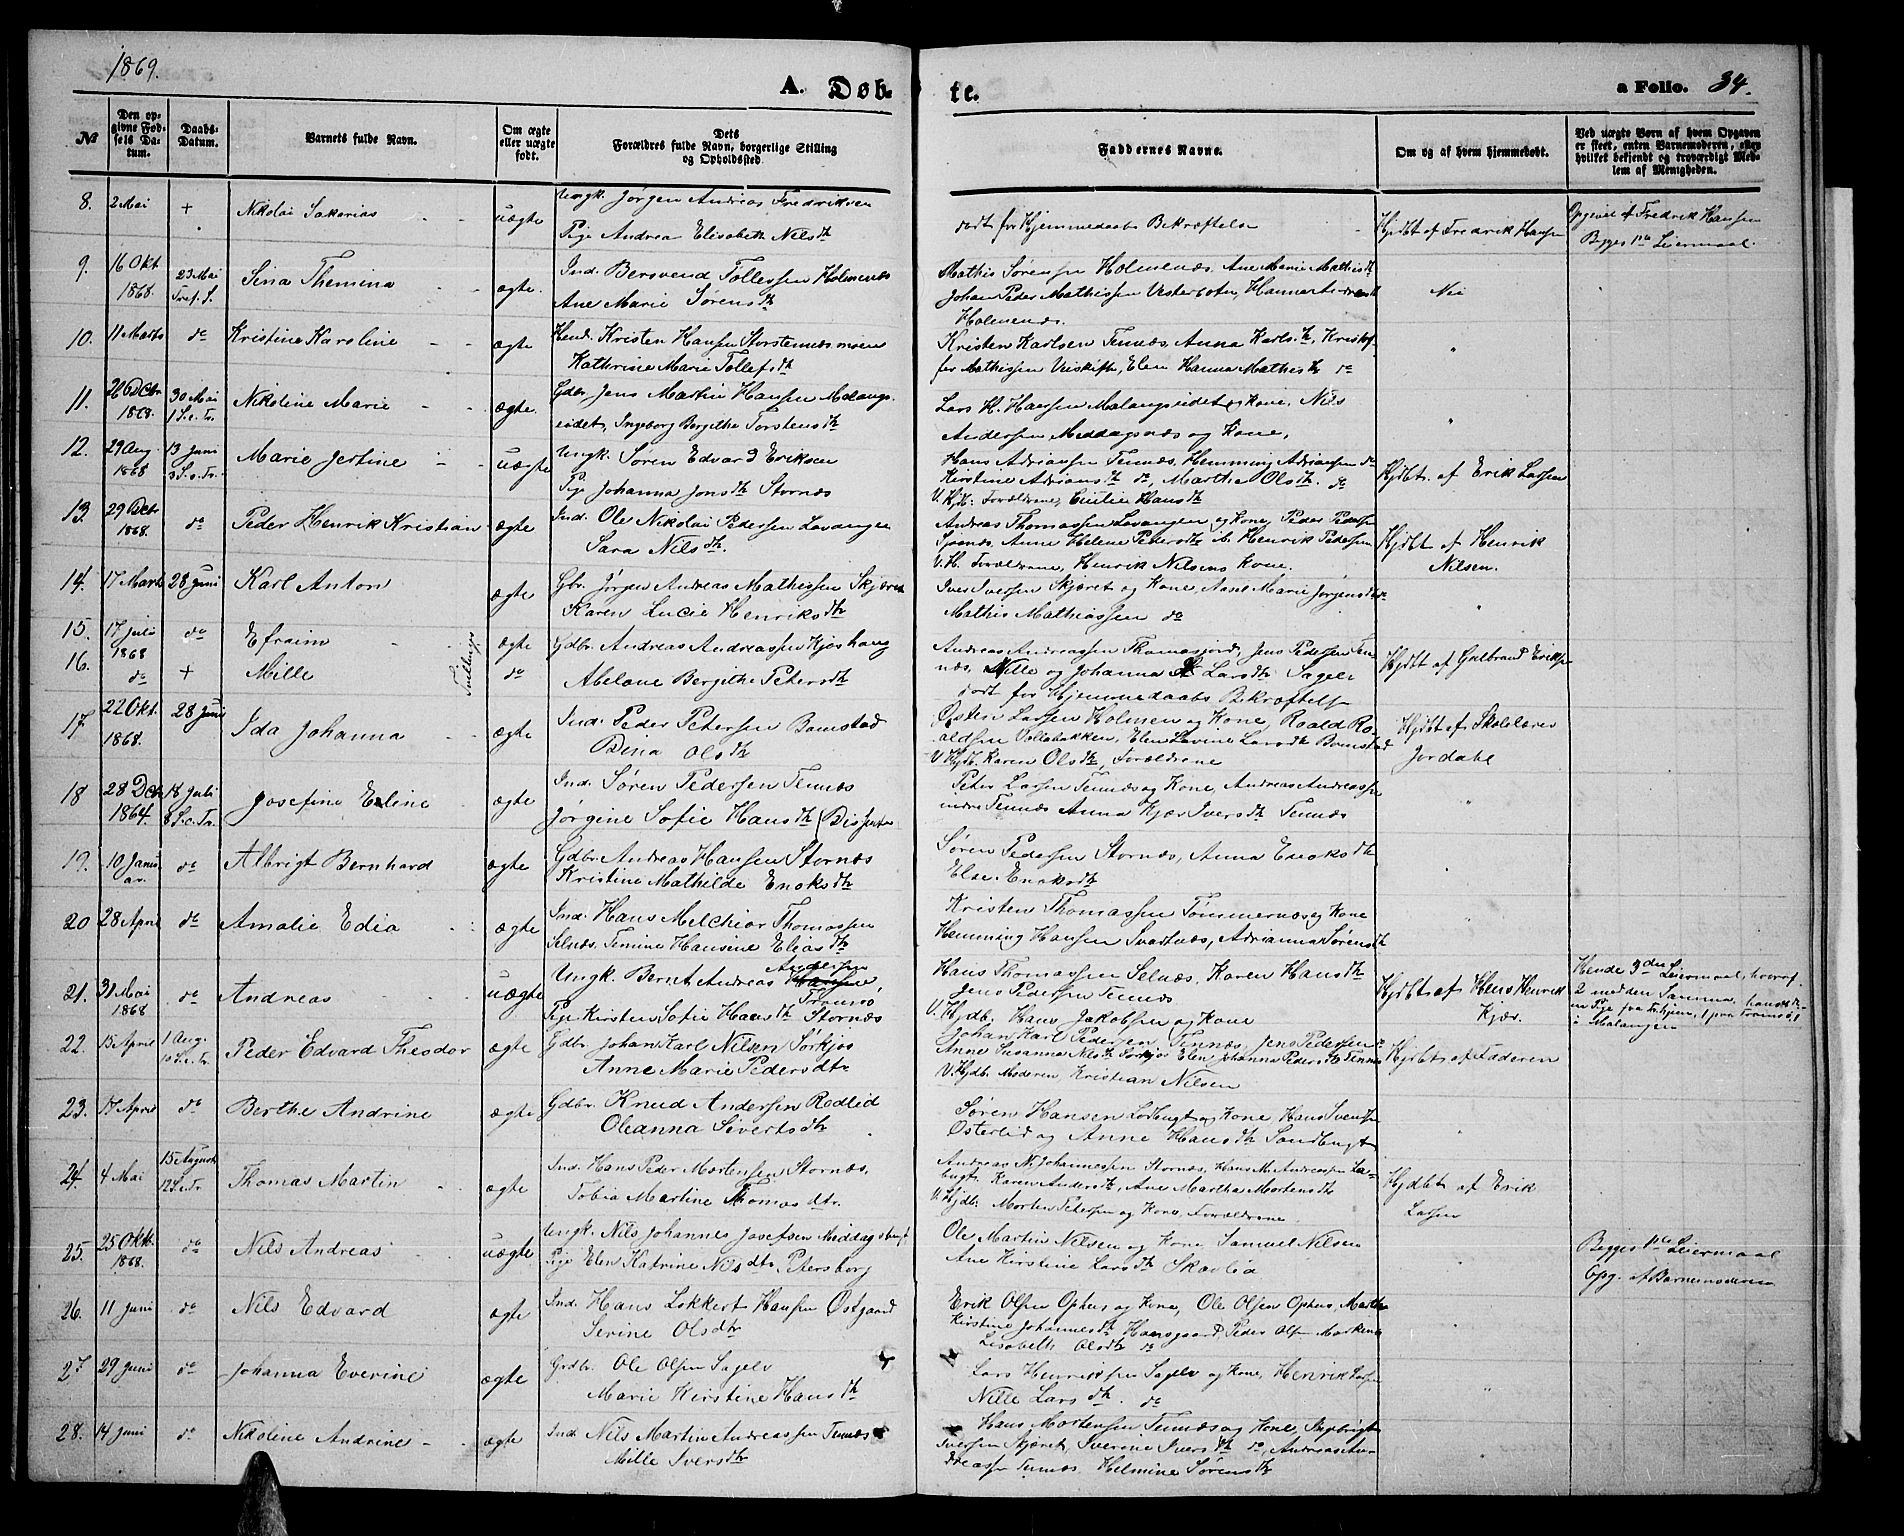 1869.
A. Døb te.
a Folio. 34.
№
Den opgivne Fødsels Datum.
Daabs-Datum.
Barnets fulde Navn.
Om ægte eller uægte født.
Dets Forældres fulde Navn, borgerlige Stilling og Opholdssted.
Faddernes Navne.
Om og af hvem hjemmedøbt.
Ved uægte Børn af hvem Opgaven er skeet, enten Barnemoderen, eller hvilket bekjendt og troværdigt Medlem af Menigheden.
8. 2 Mai + Nikolai Sakarias uægte Ungk. Jørgen Andreas Fredriksen
Pige Andrea Elisabeth Nilsdtr
dødt før Hjemmedaabs Bekræftelse
Hjdbt af Fredrik Hansen
Opgivet af Fredrik Hansen
Begges 1ste Leiermaal.
9. 16 Okt 1868. 23 Mai Tref. S. Sina Themina ægte. Ind. Bersvend Tollefsen Holmenæs
Ane Marie Sørensdtr
Mathis Sørensen Holmenæs, Ane Marie Mathisdtr
Johan Peder Mathissen Vesterbotn, Hanna Andreasdtr
Holmenæs.
Nei
10. 11 Marts do Kristine Karoline ægte Ind. Kristen Hansen Storstennæsmoen
Kathrine Marie Tollefsdtr
Kristen Karlsen Tennæs, Anna Karlsdtr, Kristof-
fer Mathissen, Elen Hanna Mathisdtr do
11. 26 Octbr 1868. 30 Mai 1 S. e. Tr. Nikoline Marie ægte. Gdbr. Jens Martin Hansen Malangs-
eidet, Ingeborg Bergithe Torstensdtr
Lars H. Hansen Malangseidet og Kone, Nils
Andersen Middagsnæs og Kone,
12. 29 Aug 1868 13 Juni 3 S. e. Tr. Marie Jertine uægte Ungk. Søren Edvard Eriksen
Pige Johanna Jonsdtr Stornæs
Hans Adriansen Tennæs, Hemming Adriansen do
Kirstine Adriansdtr do, Marthe Olsdtr do
V. Hj: Forældrene, Emilie Hansdtr
Hjdbt. af Erik Larsen
13. 29 Oct 1868. do Peder Henrik Kristian ægte Ind. Ole Nikolai Pedersen Lavangen
Sara Nilsdtr.
Andreas Thomassen Lavangen og Kone, Peder Pedersen
Anne Helene Pedersdtr ib. Henrik Pedersen
V. H. Forældrene, Henrik Nilsens Kone.
Hjdbt af Henrik
Nilsen.
14. 17 Marts 28 Juni Karl Anton ægte Gbr. Jørgen Andreas Mathissen Skjæret
Karen Lucie Henriksdtr
Iver Iversen Skjæret og Kone, Marie Jørgensdtr do
Mathis Mathiassen do
15. 17 Juli 1868 do Efraim Tvillinger ægte Gdbr. Andreas Andreassen Kjoshaug
16. do + Mille do Abelone Bergithe Petersdtr
Andreas Andreassen Thomasjord, Jens Pedersen Ten-
næs, Nille og Johanna Larsdtr Sagelv
dødt før Hjemmedaabs Bekræftelse
Hjdbt af Gulbrand Eriksen
17. 22 Okt. 1868. 28 Juni Ida Johanna ægte Ind. Peder Petersen Bomstad
Dina Olsdtr
Østen Larsen Holmen og Kone, Roald Ro-
aldsen Tollebakken, Elen Lovine Larsdtr Bomstad
V. Hjdb. Karen Olsdtr, Forældrene
Hjdbt af Skolelærer
Jordahl
18 28 Dcbr 1864. 18 Juli 8 S. e. Tr. Josefine Eline ægte Ind. Søren Pedersen Tennæs
Jørgine Sofie Hansdtr
Peter Larsen Tennæs og Kone, Andreas Andreassen
Tennæs Anna Kjær Iversdtr Tennæs
19. 10 Janu ar. do Albrigt Bernhard ægte Gdbr. Andreas Hansen Stornæs
Kristine Mathilde Enoksdtr
Søren Pedersen Stornæs, Anna Enoksdtr
Else Enoksdtr
20 28 April do Amalie Edia ægte Ind. Hans Melchior Thomassen
Selnæs, Temine Hansine Eliasdtr
Kristen Thomassen Tømmernæs og Kone
Hemming Hansen Svartnæs, Adrianna Sørensdtr
21. 31 Mai 1868 do Andreas uægte Ungk. Bernt Andreas Hansen Andersen
Tromsø
Pige Kirsten Sofie Hansdtr Stornæs
Hans Thomassen Selnæs, Karen Hansdtr
Jens Pedersen Tennæs
V. Hjdb. Hans Jakobsen og Kone
Hjdbt af Hans Henrik
Kjær.
Hendes 3die Leiermaal, hvoraf
2 med den Samme,
i Malangen
22. 15 April 1 Aug. 10 S. e. Tr. Peder Edvard Theodor ægte Gdbr. Johan Karl Nilsen Sørkjos
Anne Marie Pedersdtr
Johan Karl Pedersen Tennæs, Jens Pedersen do
Anne Susanna Nilsdtr Sørkjos Elen Johanna Pedersdtr Tennæs
V. Hjdb. Moderen, Kristian Nilsen
Hjdbt af Faderen
23. 17 April do Berthe Andrine ægte Gdbr. Knud Andersen Rødlid
Oleanna Sivertsdtr
Søren Hansen Lodbugt og Kone, Hans Svendsen
Østerlid og Anne Hansdtr Sandbugt
24. 4 Mai 15 August 12 S. e. Tr. Thomas Martin ægte Ind. Hans Peder Mortensen Stornæs.
Tobia Martine Thomasdtr.
Andreas N. Johannessen Stornæs, Hans M. Andreassen Sa-
bugt. Karen Andersdtr, Ane Martha Mortensdtr
V. Hjdb. Morten Petersen og Kone, Forældrene.
Hjdbt af Erik
Larsen
25. 25 Okt. 1868. do Nils Andreas uægte Ungk. Nils Johannes Josefsen Middagsbugt
Pige Elen Katrine Nilsdtr. Petersborg
Ole Martin Nilsen og Kone Samuel Nilsen
Ane Kirstine Larsdtr Skavlid
Begges 1ste Leiermaal
Opg. af Barnemoderen
26. 11 Juni do Nils Edvard ægte Ind. Hans Lokkert Hansen Østgaard
Serine Olsdtr
Erik Olsen Ophus og Kone, Ole Olsen Ophus, Martha
Kirstine Johannesdtr Hansgaard Peder Olsen
Lisabeth Olsdtr do
27. 29 Juni do Johanna Everine ægte Grdbr. Ole Olsen Sagelv
Marie Kirstine Hansdtr
Lars Henriksen Sagelv og Kone, Henrik Larsen
Nille Larsdtr. do
28. 14 Juni do Nikoline Andrine ægte Ind. Nils Martin Andreassen Tennæs
Mille Iversdtr
Hans Mortensen Tennæs og Kone, Ingebrigt
Iversen Skjæret, Iverine Iversdtr do, Andreas An-
dreassen Tennæs, Helmine Sørensdtr